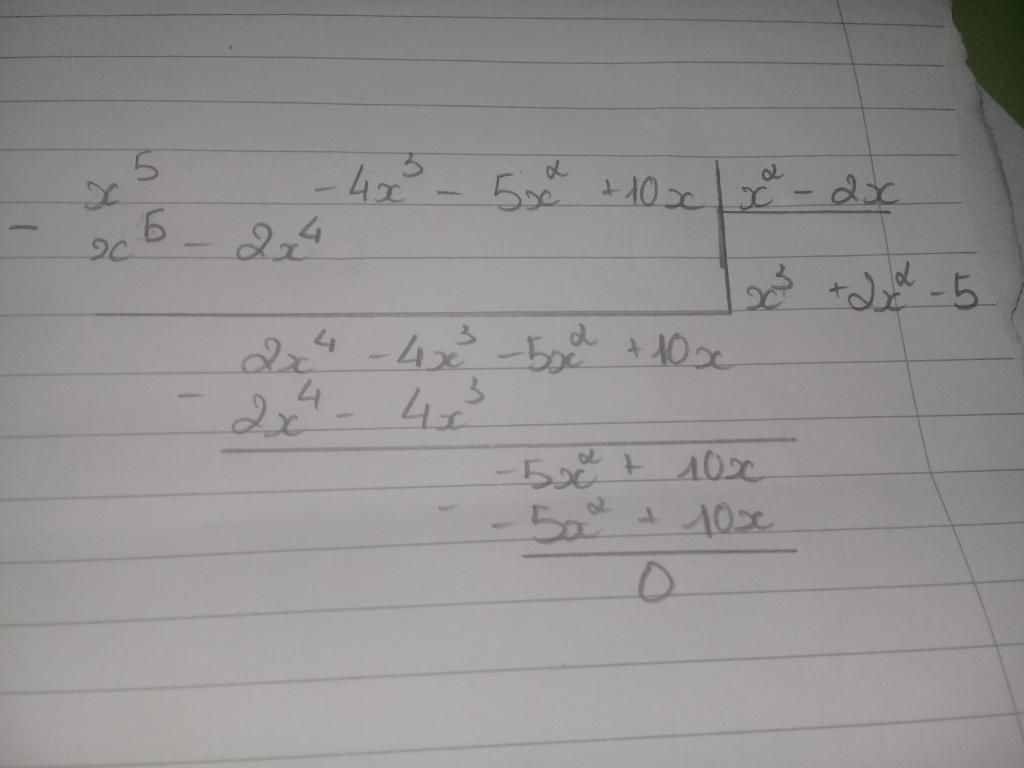 x⁵ - 4x³ - 5x² + 10x | x² - 2x
- x⁵ - 2x⁴
x³ + 2x² - 5
2x⁴ - 4x³ - 5x² + 10x
- 2x⁴ - 4x³
-5x² + 10x
- -5x² + 10x
0